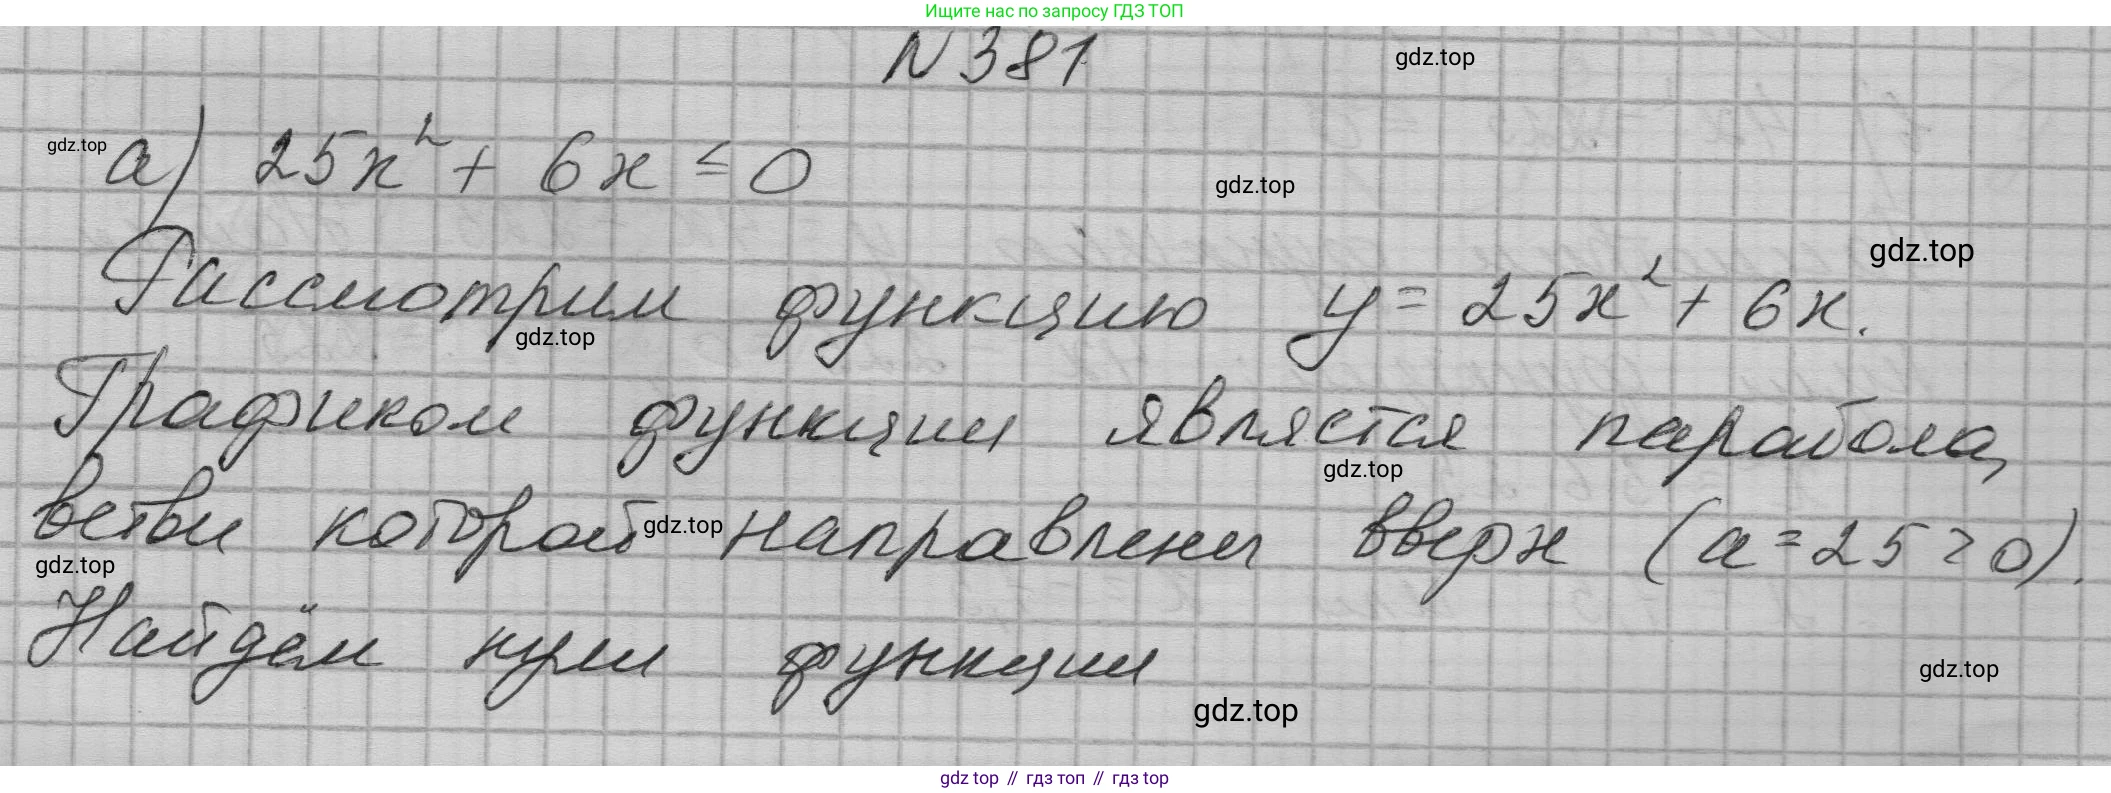 Ищите нас по запросу ГДЗ ТОП
N 381
gdz.top
gdz.top
а) 25x² + 6x ≤ 0
gdz.top
Рассмотрим функцию y = 25x² + 6x.
gdz.top
gdz.top
Графиком функции является парабола,
gdz.top
ветви которой направлены вверх (a = 25 > 0).
gdz.top
gdz.top
Найдём нули функции
gdz.top
gdz.top
gdz top // гдз топ // гдз top